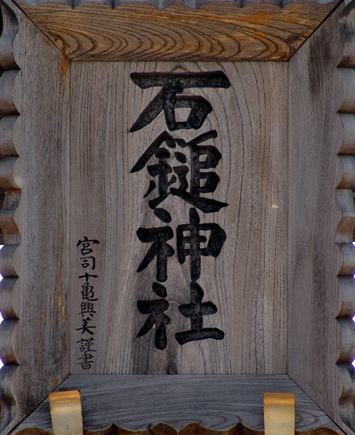 石鎚神社
宮司十亀興美謹書